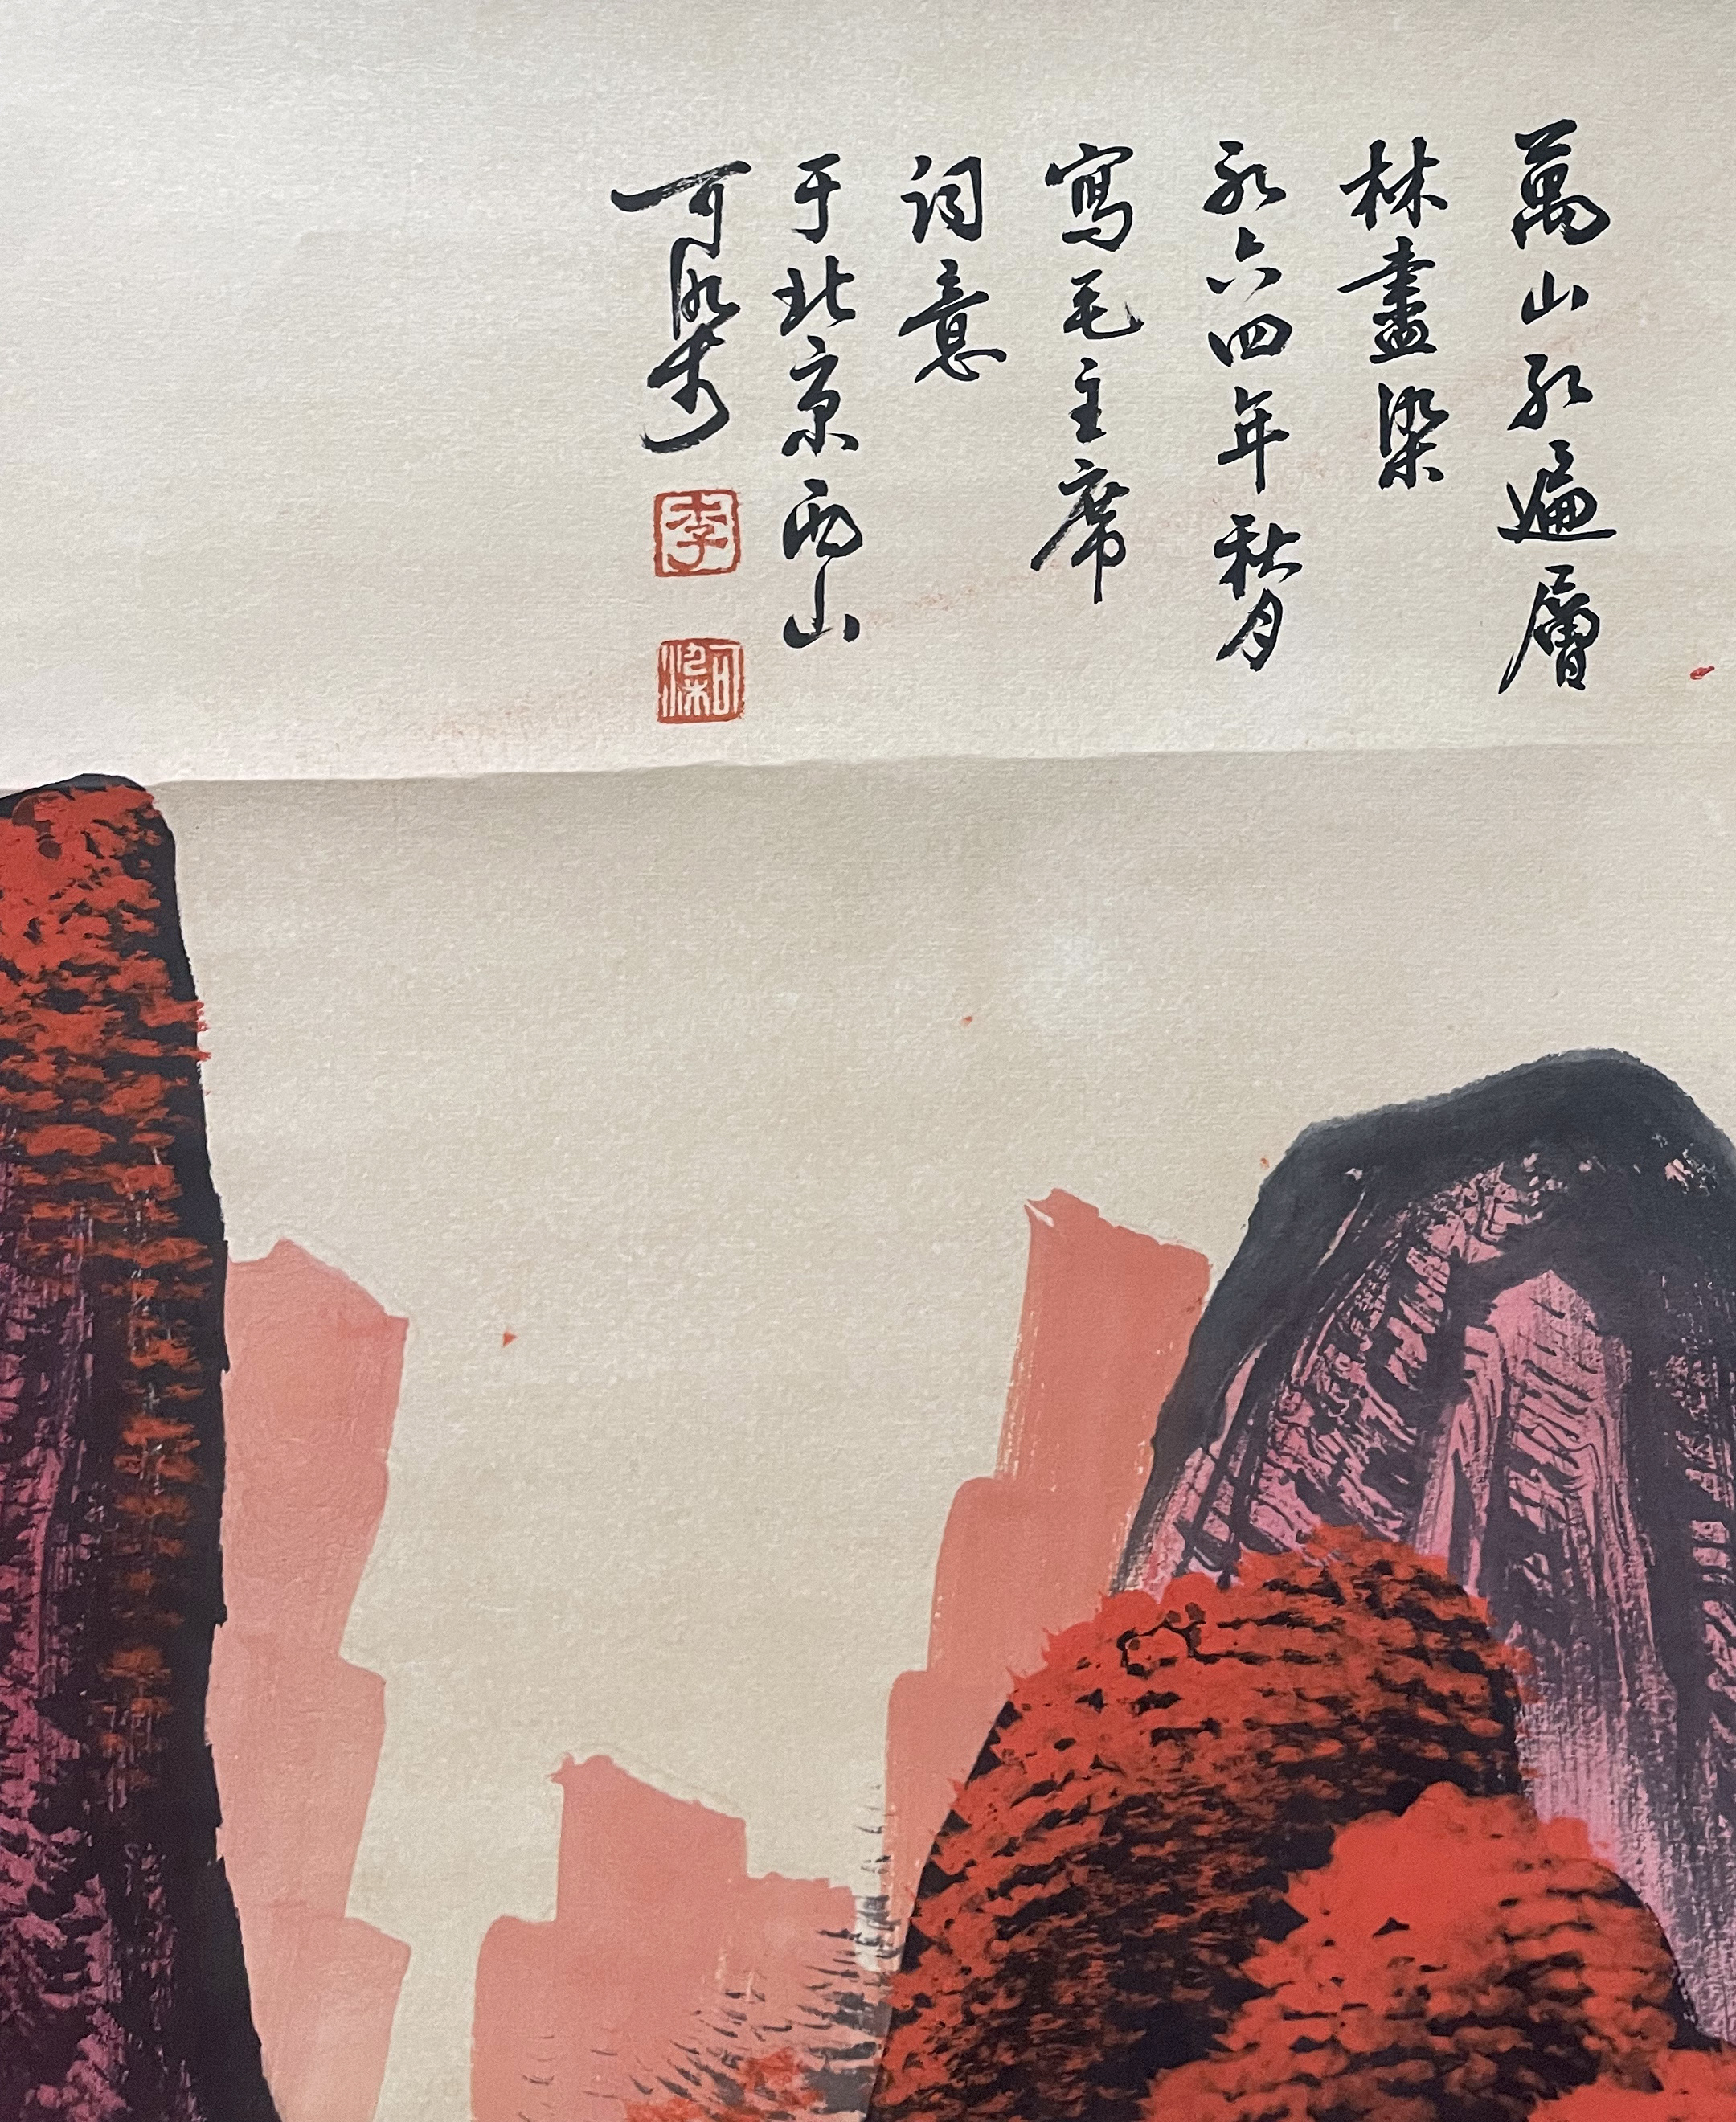 萬山紅遍層
林盡染
紅六四年秋月
寫毛主席
詞意
于北京西山
可染
李
可染